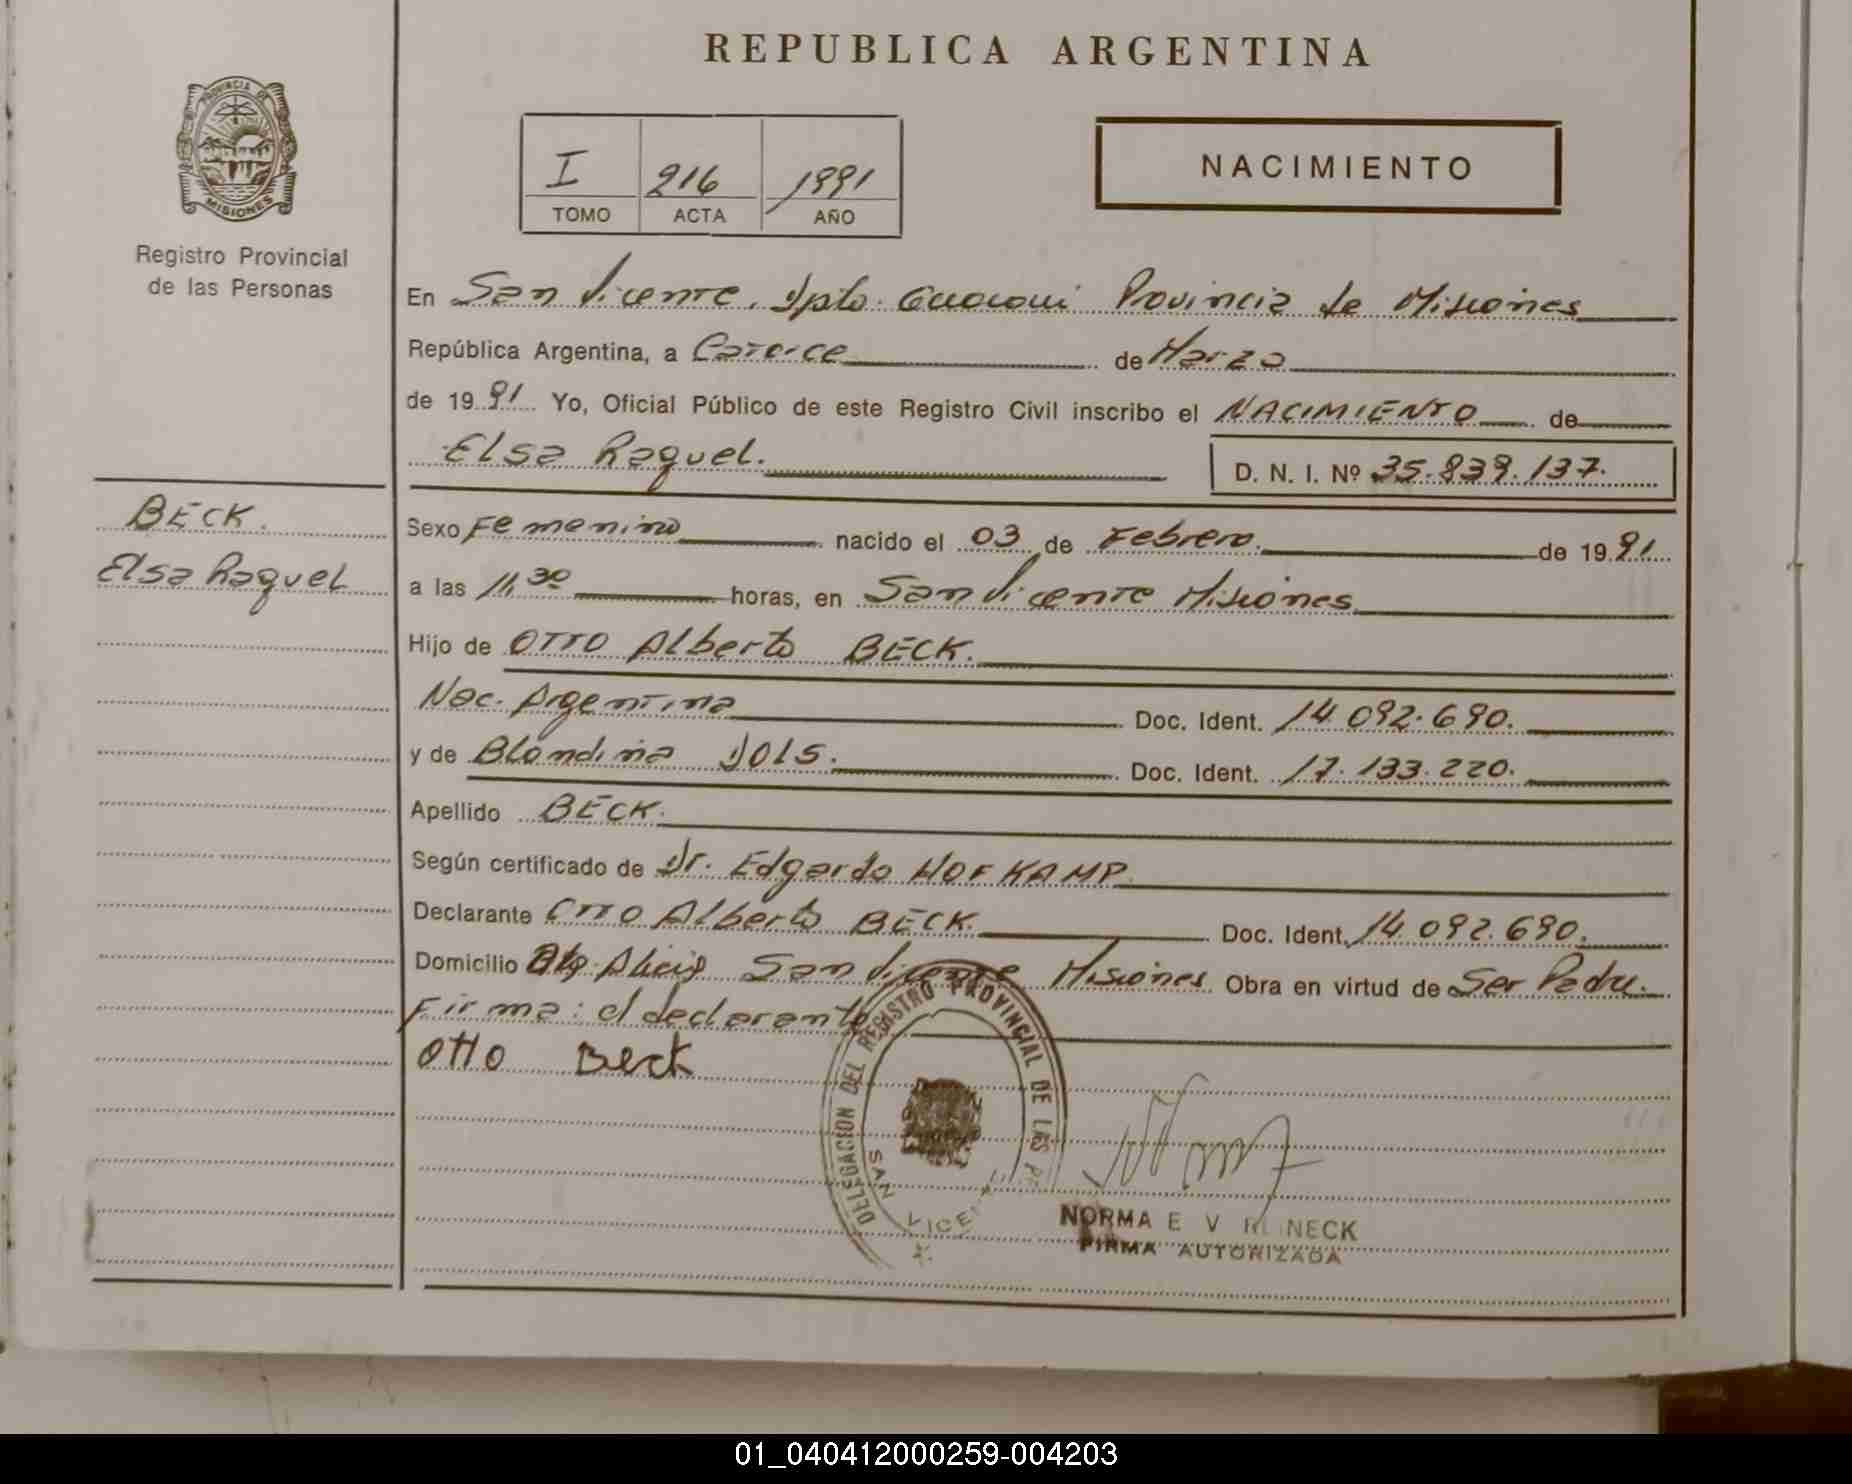 REPUBLICA ARGENTINA
PROVINCIA DE
MISIONES
Registro Provincial
de las Personas
I 216 1991
TOMO ACTA AÑO
NACIMIENTO
En San Vicente, Dpto. Guaraní Provincia de Misiones
República Argentina, a Catorce de Marzo
de 1991 Yo, Oficial Público de este Registro Civil inscribo el NACIMIENTO de
Elsa Raquel.
D. N. I. Nº 35.839.137.
BECK.
Elsa Raquel
Sexo Femenino nacido el 03 de Febrero. de 1991
a las 11,30 horas, en San Vicente Misiones
Hijo de OTTO Alberto BECK.
Nac. Argentina Doc. Ident. 14.092.690.
y de Blondina DOLS. Doc. Ident. 17.133.220.
Apellido BECK.
Según certificado de Dr. Edgardo HOFKAMP.
Declarante OTTO Alberto BECK. Doc. Ident. 14.092.690.
Domicilio Alicia San Vicente Misiones Obra en virtud de Ser Padre.
Firma: el declarante
Otto Beck
DELEGACION DEL REGISTRO PROVINCIAL DE LAS
SAN
NORMA E V
FIRMA AUTORIZADA
01_040412000259-004203